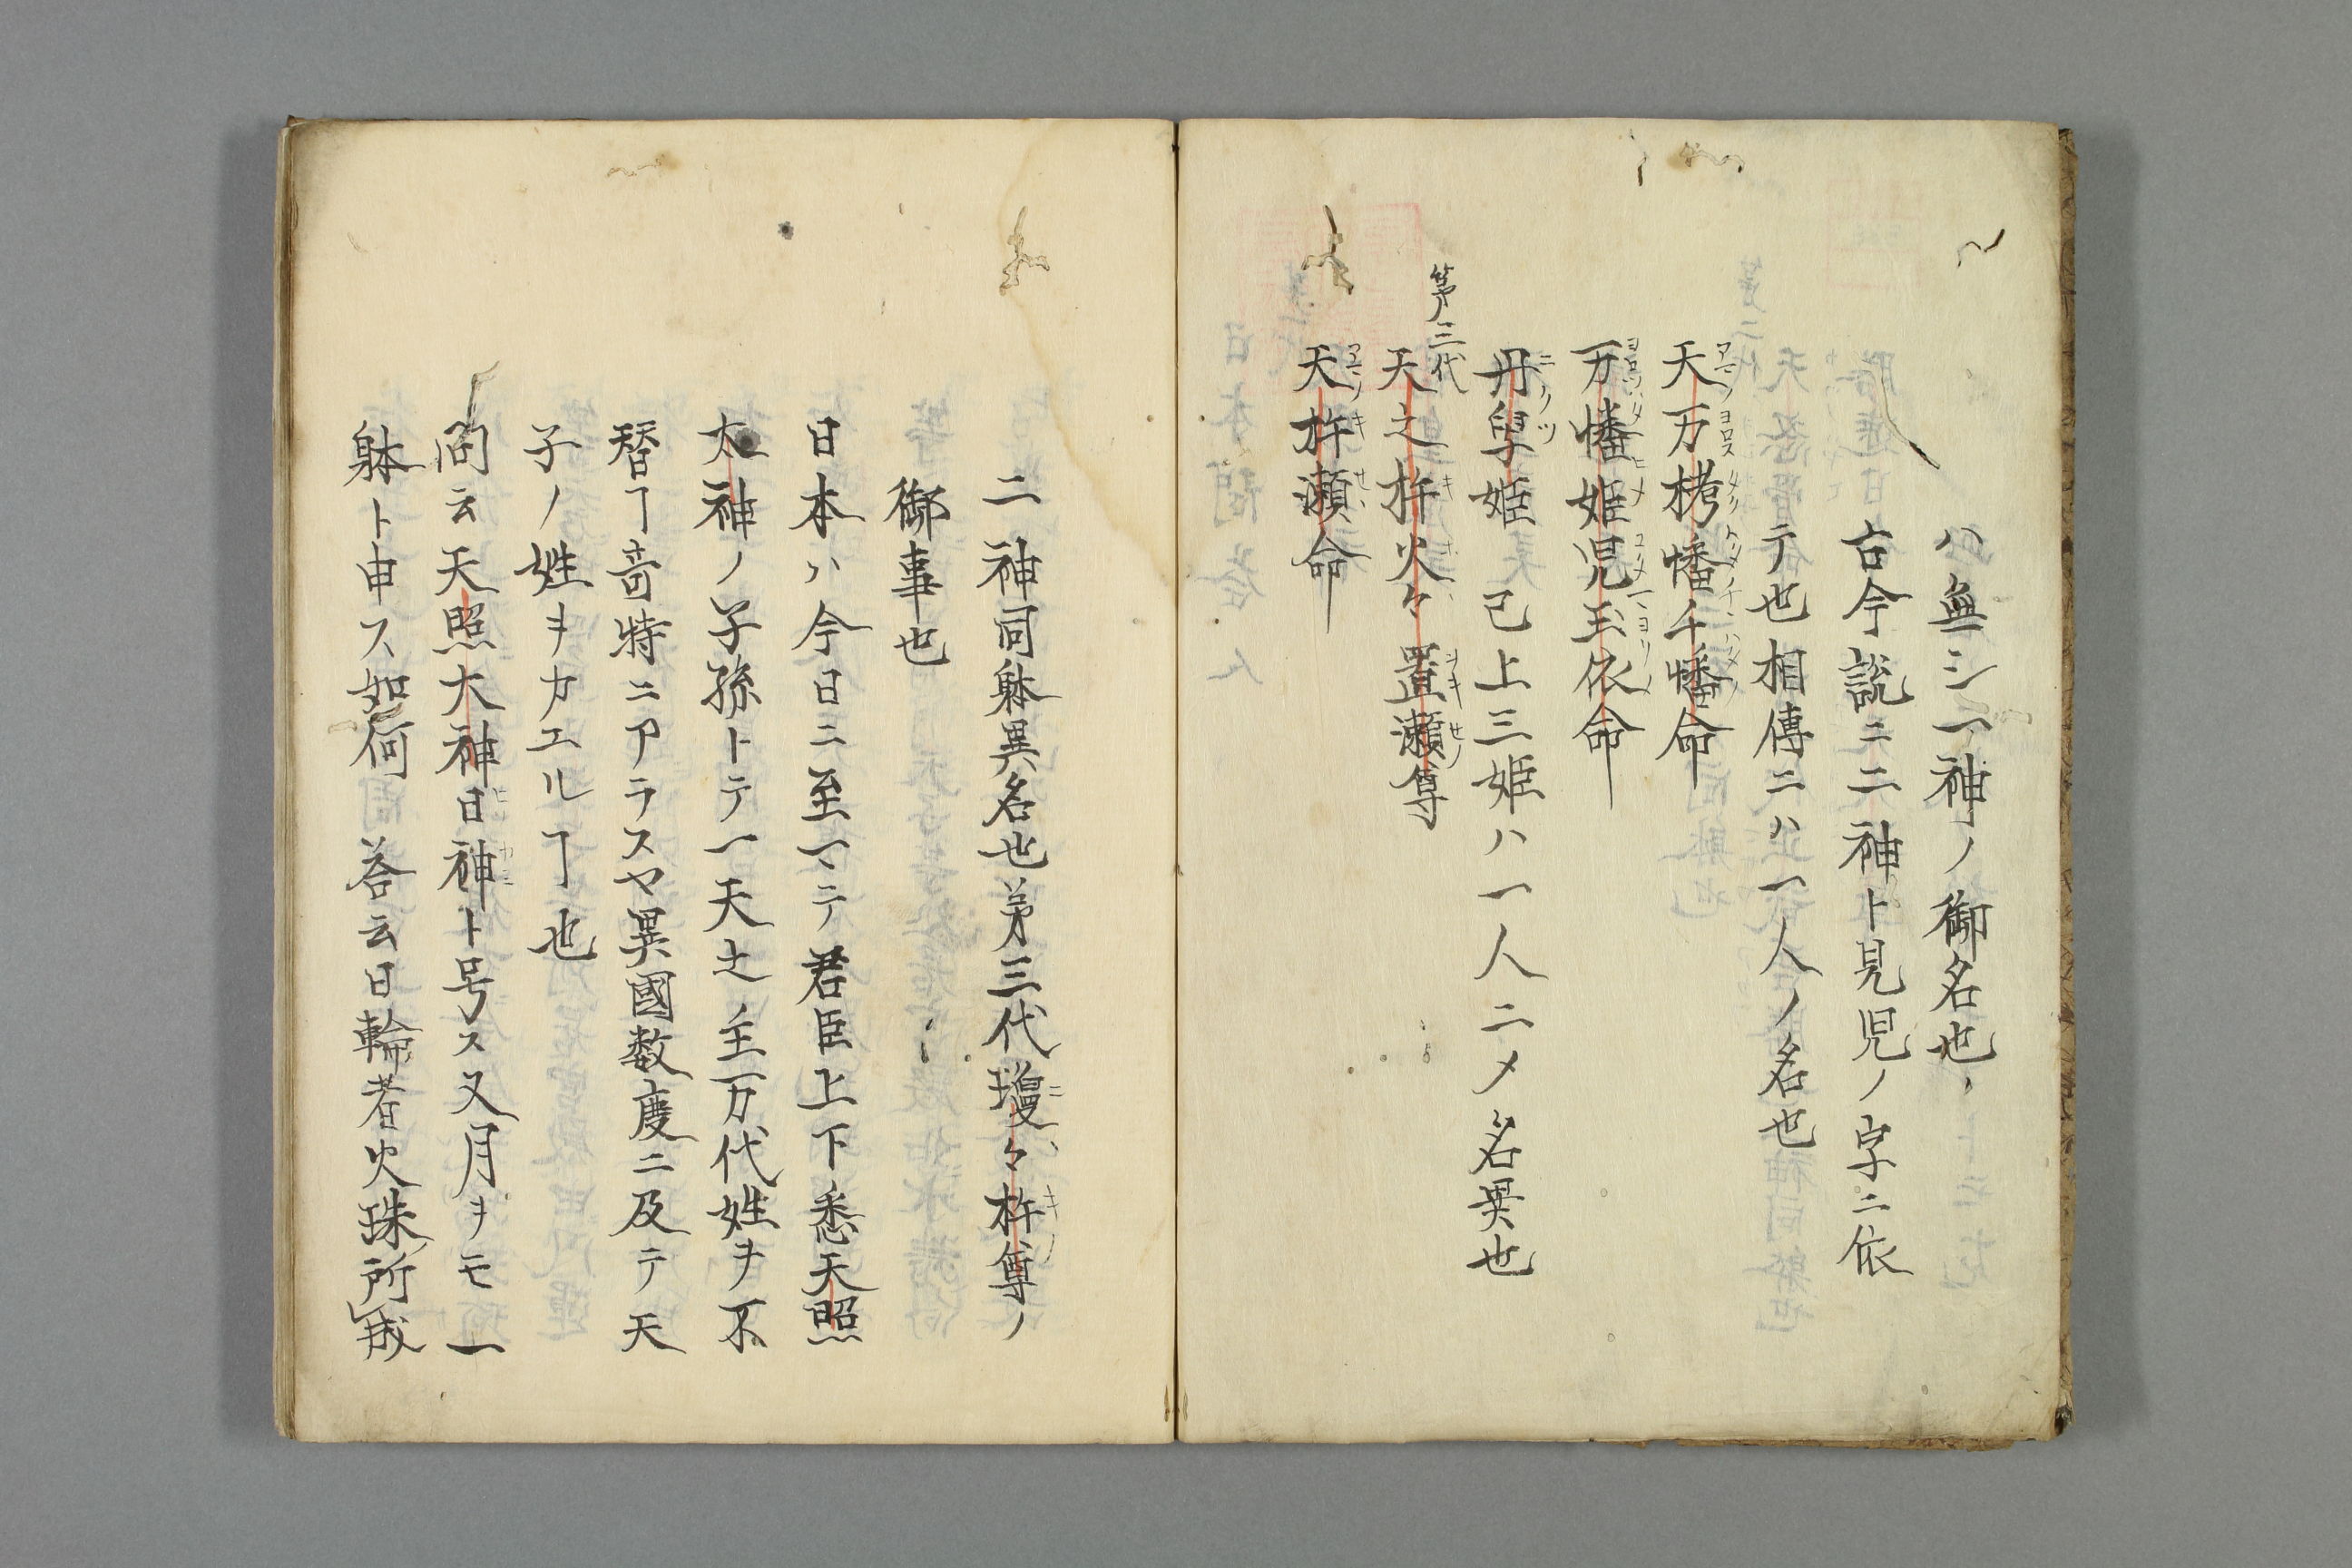 ハ無シ一神ノ御名也
古今説ニ二神ト見児ノ字ニ依
テ也相傳ニハ一人ノ名也
天万栲幡千幡命
万幡姫児玉依命
丹舃姫 已上三姫ハ一人ニメ名異也
第三代
天之杵火々置瀬尊
天杵瀬命
二神同躰異名也第三代瓊々杵尊ノ
御事也
日本ハ今日ニ至マテ君臣上下悉天照
太神ノ子孫トテ一天之主万代姓ヲ不
替ヿ竒特ニアラスヤ異國数度ニ及テ天
子ノ姓ヲカエルヿ也
問云天照大神日神ト号ス又月ヲモ一
躰ト申ス如何 荅云日輪者火珠所成